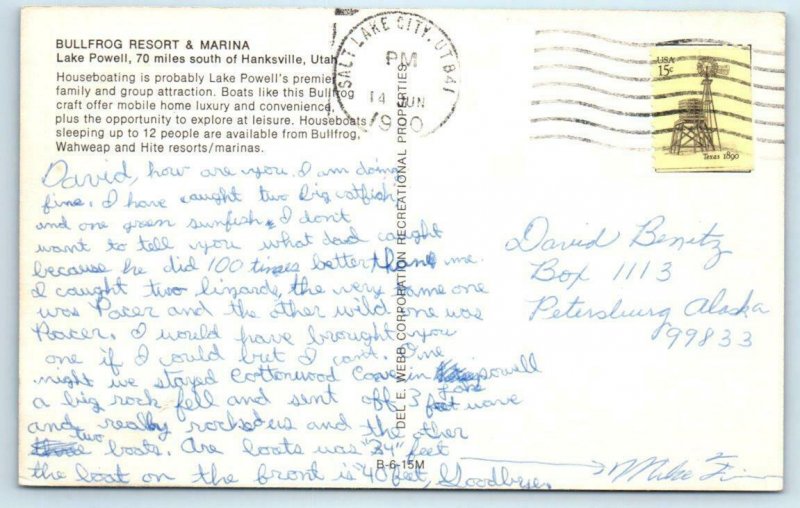 BULLFROG RESORT & MARINA
Lake Powell, 70 miles south of Hanksville, Utah
Houseboating is probably Lake Powell's premier
family and group attraction. Boats like this Bullfrog
craft offer mobile home luxury and convenience,
plus the opportunity to explore at leisure. Houseboats
sleeping up to 12 people are available from Bullfrog,
Wahweap and Hite resorts/marinas.
David, how are you. I am doing
fine. I have caught two big catfish
and one green sunfish. I don't
want to tell you what dad caught
because he did 100 times better than me.
I caught two lizards, the very tame one
was Pacer and the other wild one was
Racer. I would have brought you
one if I could but I can't. One
night we stayed Cottonwood Cove in powell
lake
a big rock fell and sent off 3 feet wave
and really rocked us and the other
two boats. Are boats was "34" feet
the boat on the front is "40 feet, Goodbye.
Mike
DEL E. WEBB CORPORATION RECREATIONAL PROPERTIES
B-6-15M
SALT LAKE CITY, UT 841
PM
14 JUN
USA
15c
Texas 1890
David Benitz
Box 1113
Petersburg Alaska
99833